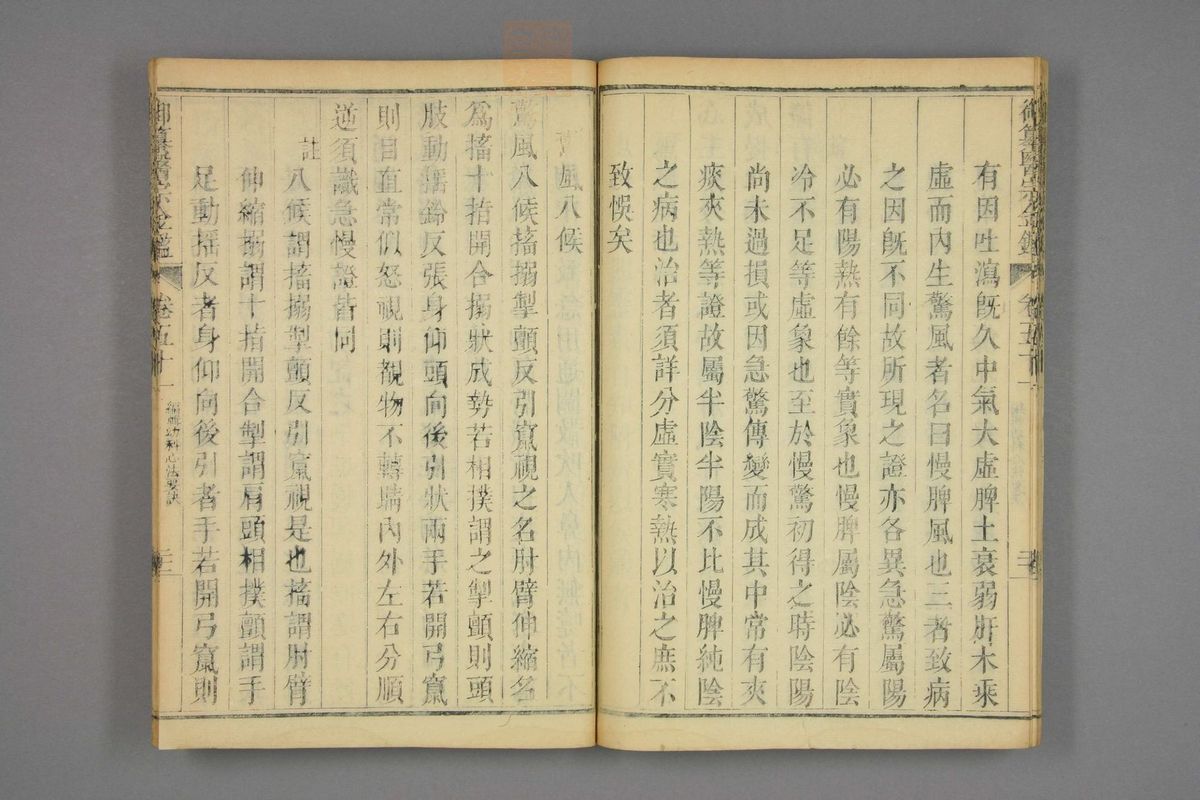 御纂醫宗金鑑 卷五十一
有因吐瀉既久中氣大虛脾土衰弱肝木乘
虛而內生驚風者名曰慢脾風也三者致病
之因既不同故所現之證亦各異急驚屬陽
必有陽熱有餘等實象也慢脾屬陰必有陰
冷不足等虛象也至於慢驚初得之時陰陽
尚未過損或因急驚傳變而成其中常有夾
痰夾熱等證故屬半陰半陽不比慢脾純陰
之病也治者須詳分虛實寒熱以治之庶不
致悞矣
風八候
驚風八候搐搦掣顫反引竄視之名肘臂伸縮名
為搐十指開合搦狀成勢若相撲謂之掣顫則頭
肢動搖鈴反張身仰頭向後引狀兩手若開弓竄
則目直常似怒視則觀物不轉睛內外左右分順
逆須識急慢證皆同
註
八候謂搐搦掣顫反引竄視是也搐謂肘臂
伸縮搦謂十指開合掣謂肩頭相撲顫謂手
足動搖反者身仰向後引者手若開弓竄則
御纂醫宗金鑑 卷五十一 編輯幼科心法要訣 三